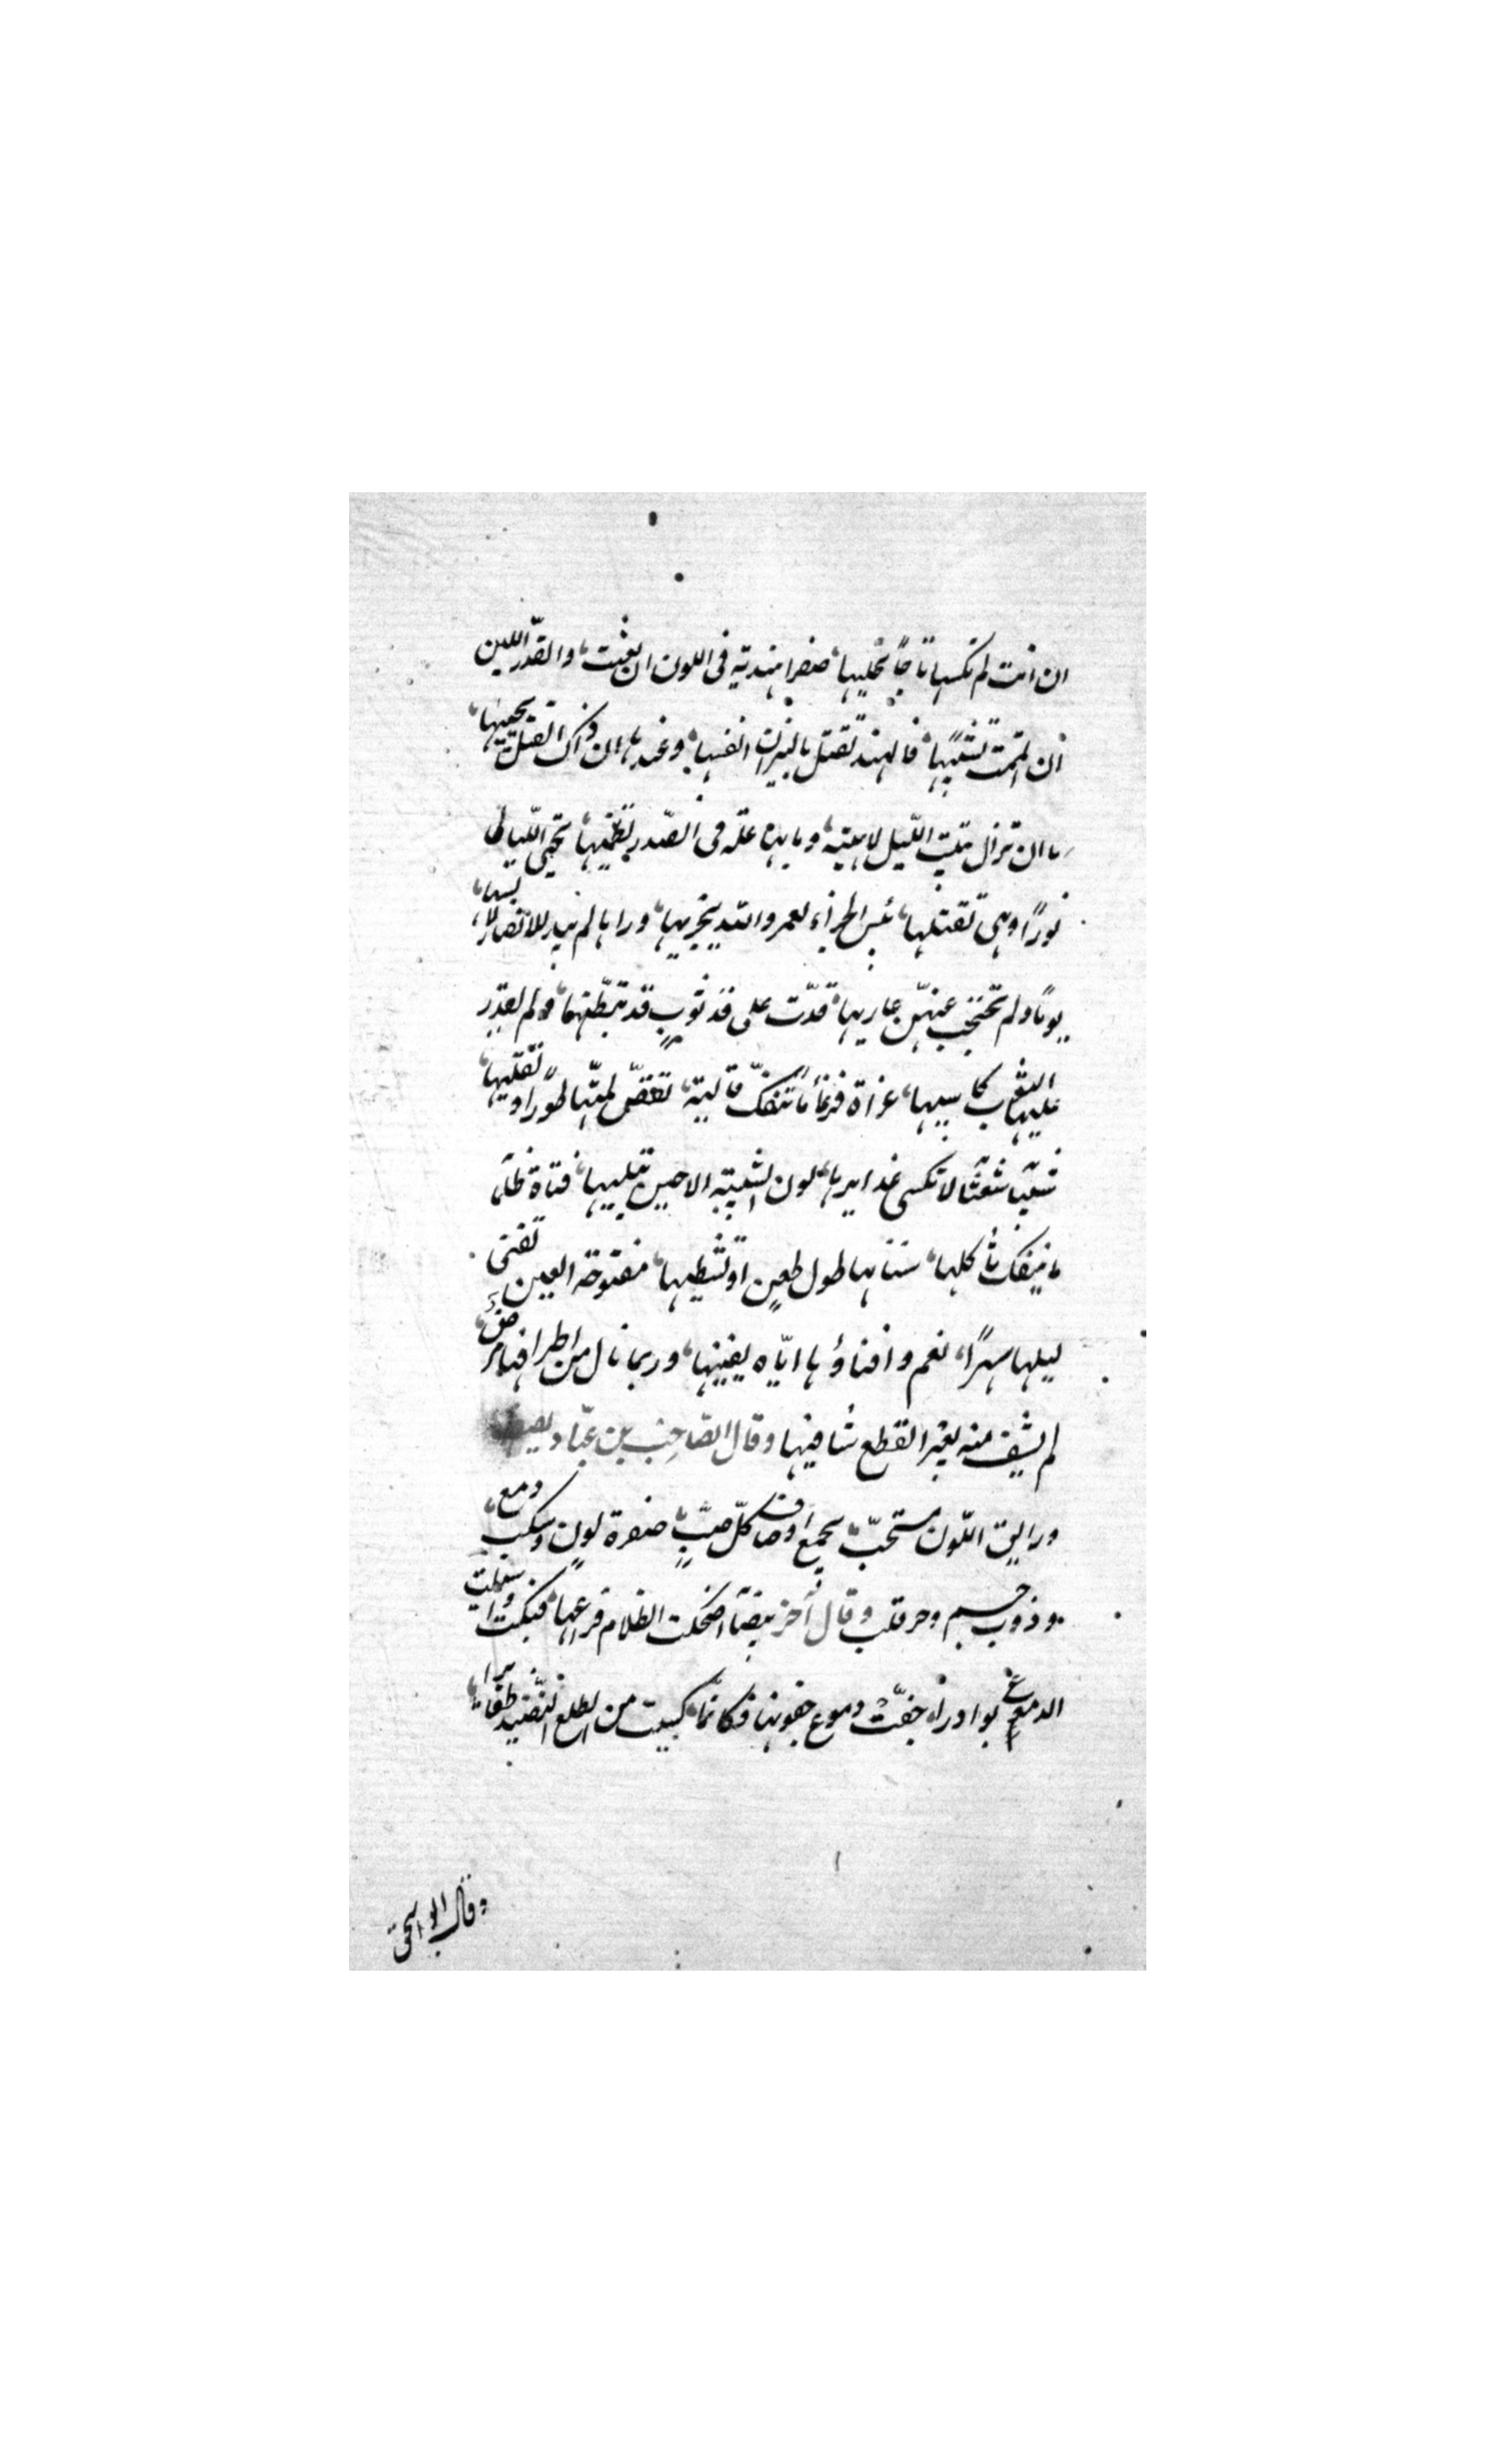 ان انت لم تكسها تاجًا تحليها، صفرا هندية فى اللون ان نعتت، والقدّ واللين
ان اتممت تشبيهًا، فالهند تقتل بالنيران انفسها، وعندها ان ذاك القتل يحييها،
ما ان تزال تبيت الليل لاهية، وما بها علّة فى الصّدر تظميها، تحيى اللّيالى
نورًا وهى تقتلها، بئس الجزآء لعمرو الله يجزيها، ورها لم يبد للابصار لابسها،
يومًا ولم تحتجب عنهنّ عاريها، قدّت على قد ثوبٍ قد تبطّنها، ولم يقدّر
عليها الثوب كاسيها، غرآء فرعآء ما تنفكّ قالية، تقصّ لمّتها طورًا وتفليها،
شيبآء شعثآ لا تكسى غدايرها، لون الشبيبة الا حين تبليها، قناة ظلمآ
ما ينفك يأكلها، سنانها طول طعنٍ او تشظيها، مفتوحة العين تفنى
ليلها سهرًا، نعم وافناؤها ايّاه يفنيها، وربما نال من اطرافها مرضٌ،
لم يشف منه بغير القطع شافيها وقال الصّاحب بن عبّاد
ورايق اللّون مستحبّ، يجمع اوصاف كلّ صبٍّ، صفرة لونٍ وسكب دمعٍ،
وذوب جسم وحر قلب وقال آخر بيضآء اضحكت الظلام فراعها، فبكت واسبلت
الدموع بوادرا، جفّت دموع جفونها فكانمّا، كسيت من الطلع النّضيد
وقال ابو اسحق